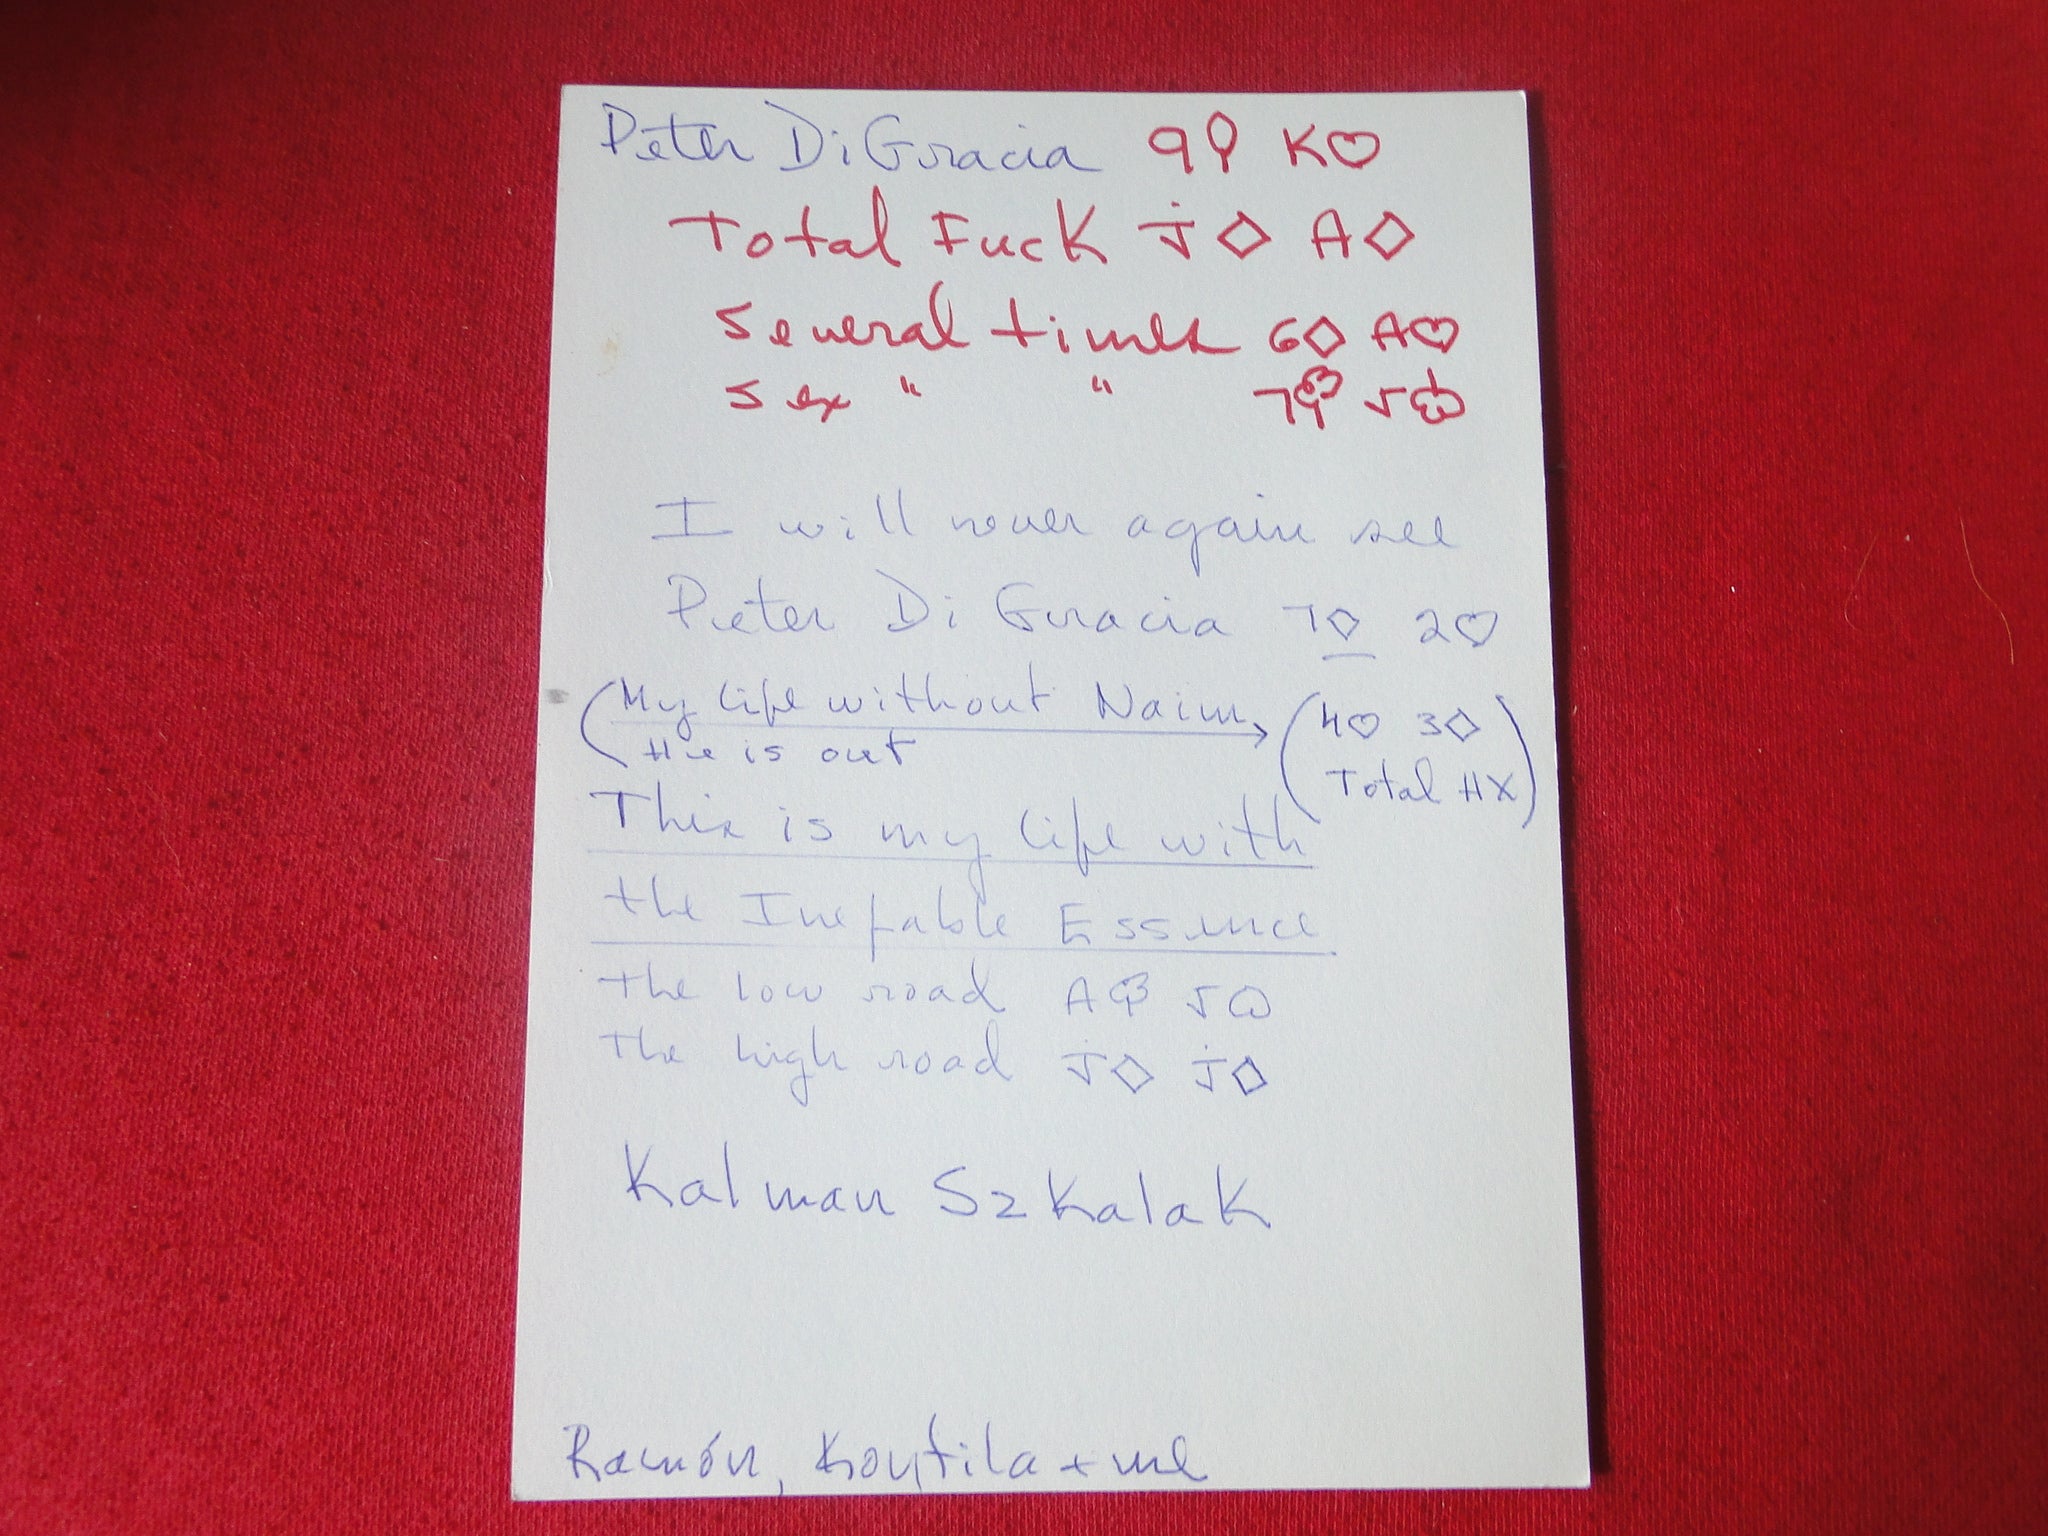 Peter DiGracia 9♤ K♡
Total Fuck J♢ A♢
Several times 6♢ A♡
Sex " " 7♧ 5♧
I will never again see
Peter Di Gracia 7♢ 2♡
(My life without Naim → (4♡ 3♢
He is out Total HX)
This is my life with
the Inefable Essence
the low road A♧ 5♡
The high road J♢ J♢
Kalman Szkalak
Ramón, Koutila + me